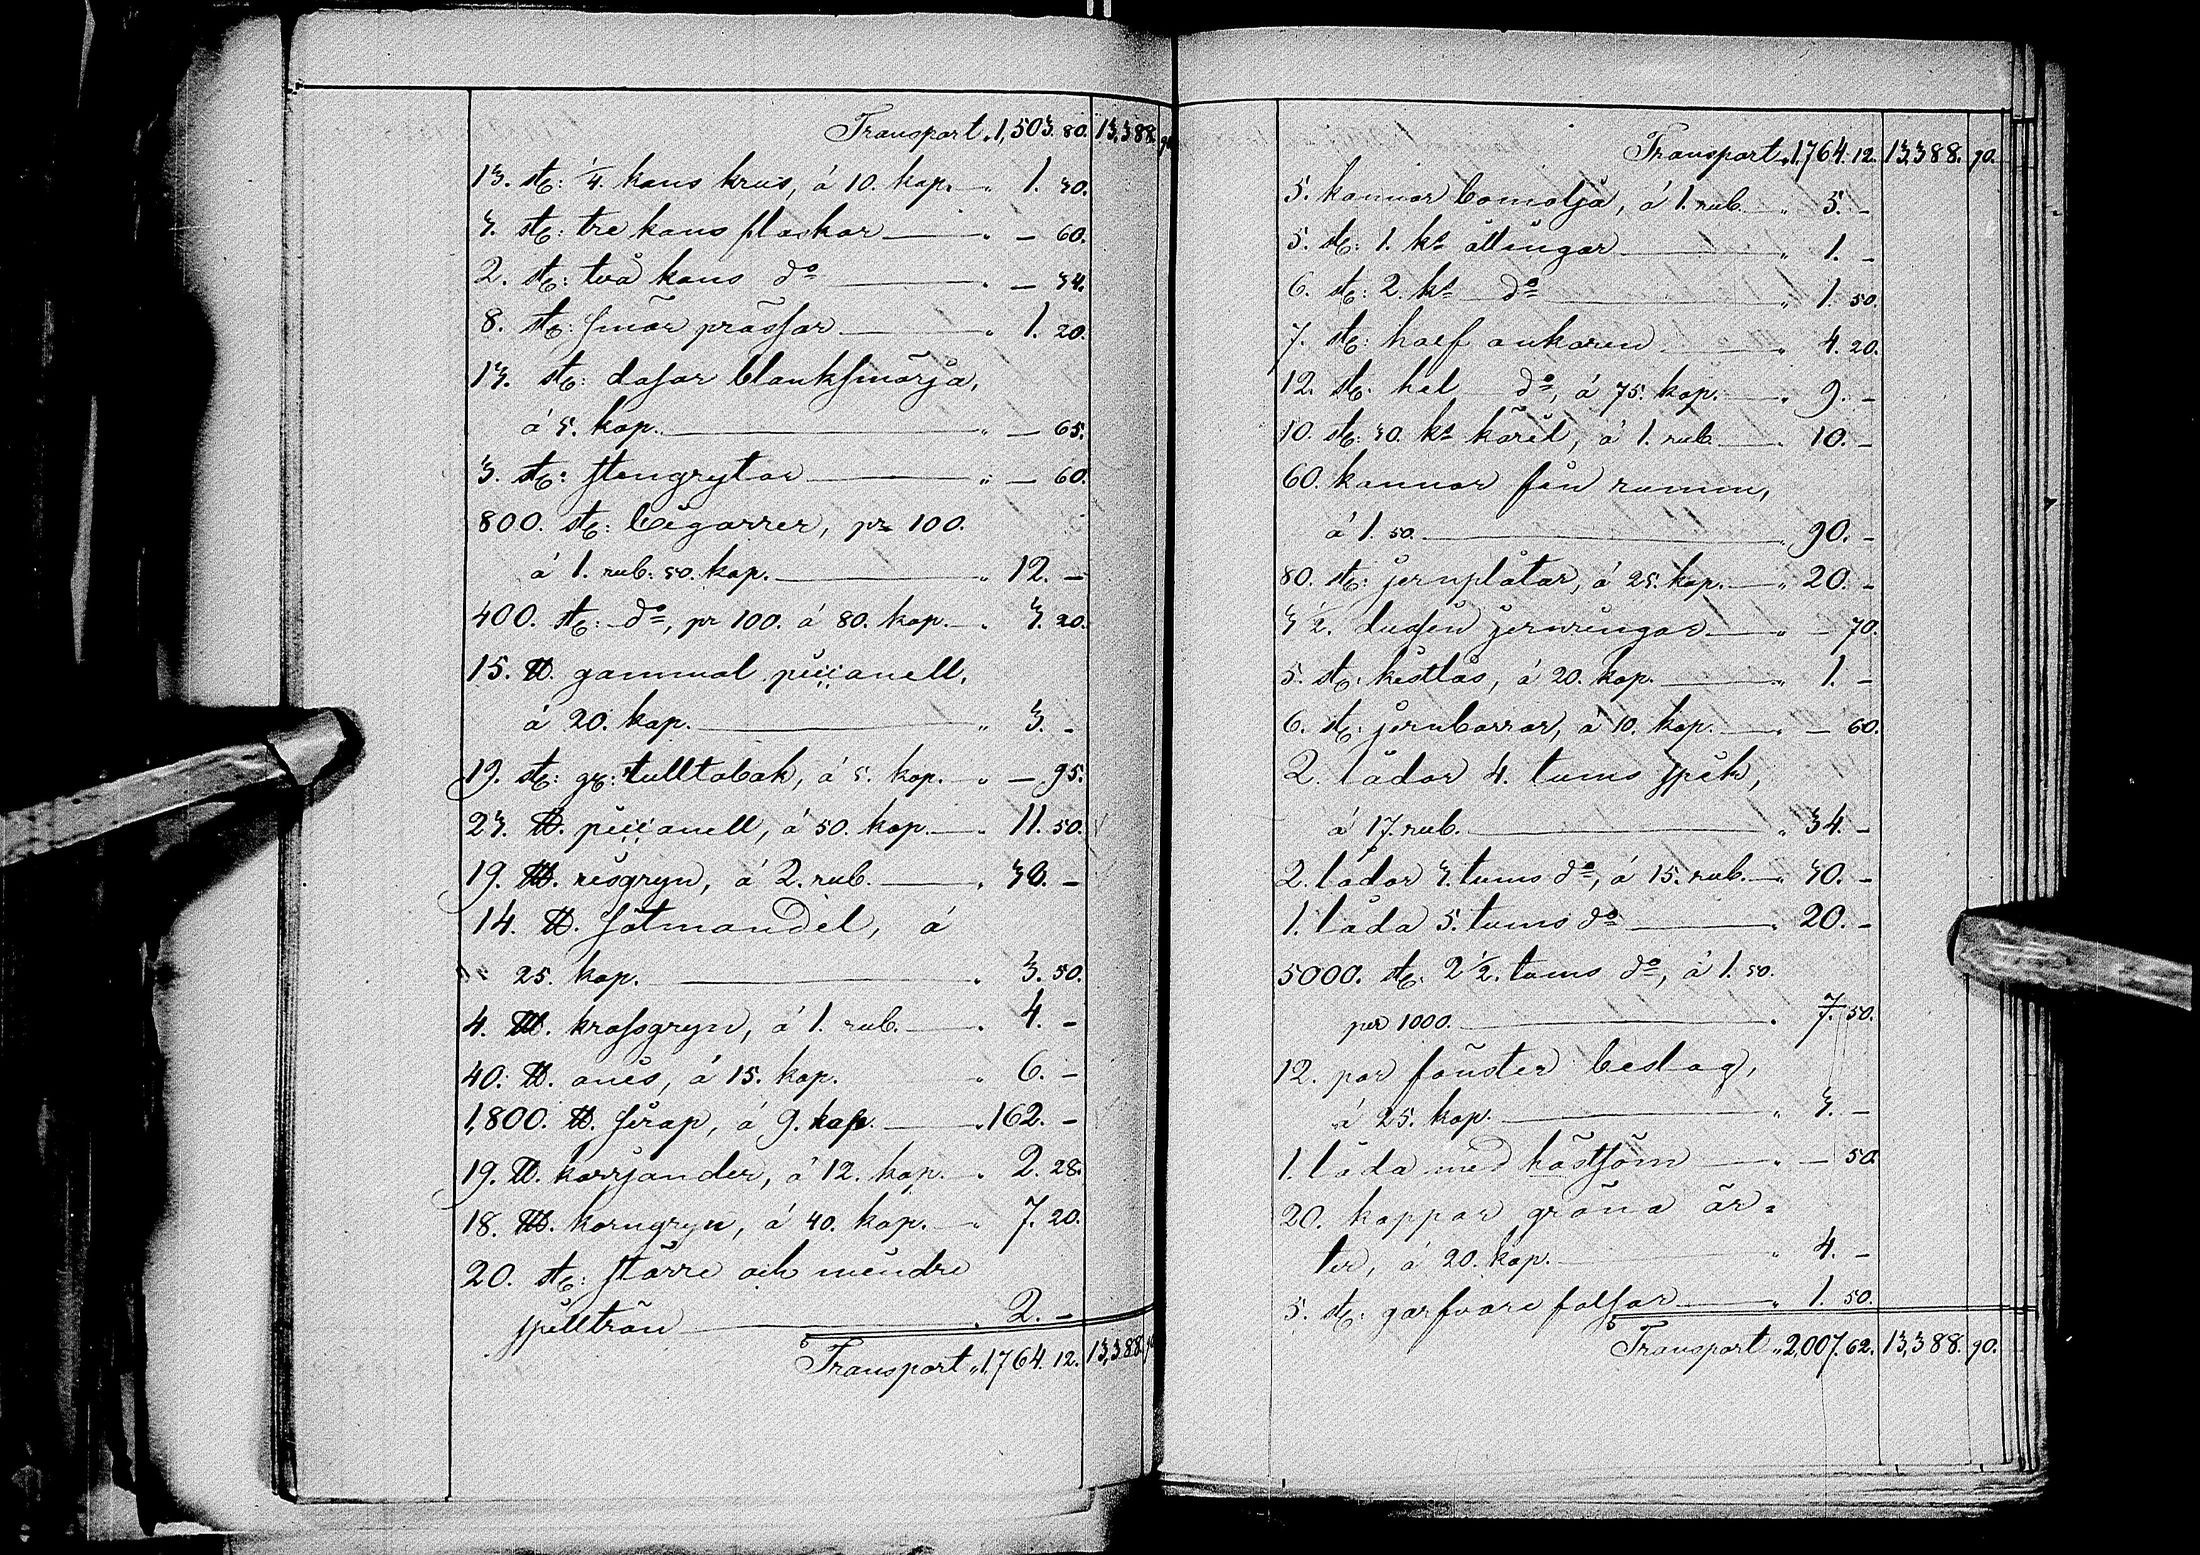 Transport „ 1,503. 80. 13,388. 90.
13. st: 1/4. kans krus, á 10. kop. „ 1. 30.
3. st: tre kans flaskor „ — 60.
2. st: två kans do „ — 34.
8. st: smör prässar „ 1. 20.
13. st: dosor blanksmörja,
á 5. kop. „ — 65.
3. st: stengrytor „ — 60.
800. st: Cigarrer, pr 100.
á 1. rub: 50. kop. „ 12. —
400. st: do, pr 100. á 80. kop. „ 3. 20.
15. ℔. gammal piccanell,
á 20. kop. „ 3. —
19. st: gr: rulltobak, á 5. kop. „ — 95.
23. ℔. piccanell, á 50. kop. „ 11. 50.
19. L℔. risgryn, á 2. rub. „ 38. —
14. ℔. sötmandel, á
25. kop. „ 3. 50.
4. L℔. krossgryn, á 1. rub. „ 4. —
40. ℔. anis, á 15. kop. „ 6. —
1,800. ℔. sirap, á 9. kop. „ 162. —
19. ℔. korrjander, á 12. kop. „ 2. 28.
18. L℔. korngryn, á 40. kop. „ 7. 20.
20. st: större och mindre
spilltrån „ 2. —
Transport „ 1764. 12. 13,388.
Transport „ 1,764. 12. 13,388. 90.
5. kannor bomolja, á 1. rub. „ 5. —
5. st: 1. ks åttingar „ 1. —
6. st: 2. ks do „ 1. 50.
7. st: half ankaren „ 4. 20.
12. st: hel do, á 75. kop. „ 9. —
10. st: 30. ks käril, á 1. rub. „ 10. —
60. kannor fin rumm,
á 1. 50. „ 90. —
80. st: jernplåtar, á 25. kop. „ 20. —
3 1/2. dussin jernringar „ — 70.
5. st: kistlås, á 20. kop. „ 1. —
6. st: jernbarrar, á 10. kop. „ — 60.
2. lådor 4. tums spik,
á 17. rub. „ 34. —
2. lådor 3. tums do, á 15. rub. „ 30. —
1. låda 5. tums do „ 20. —
5000. st: 2 1/2. tums do, á 1. 50.
per 1000. „ 7. 50.
12. par fönster beslag,
á 25. kop. „ 3. —
1. låda med hästsöm „ — 50.
20. kappar gröna är=
ter, á 20. kop. „ 4. —
5. st: garfvare falsar „ 1. 50.
Transport „ 2,007. 62. 13,388. 90.